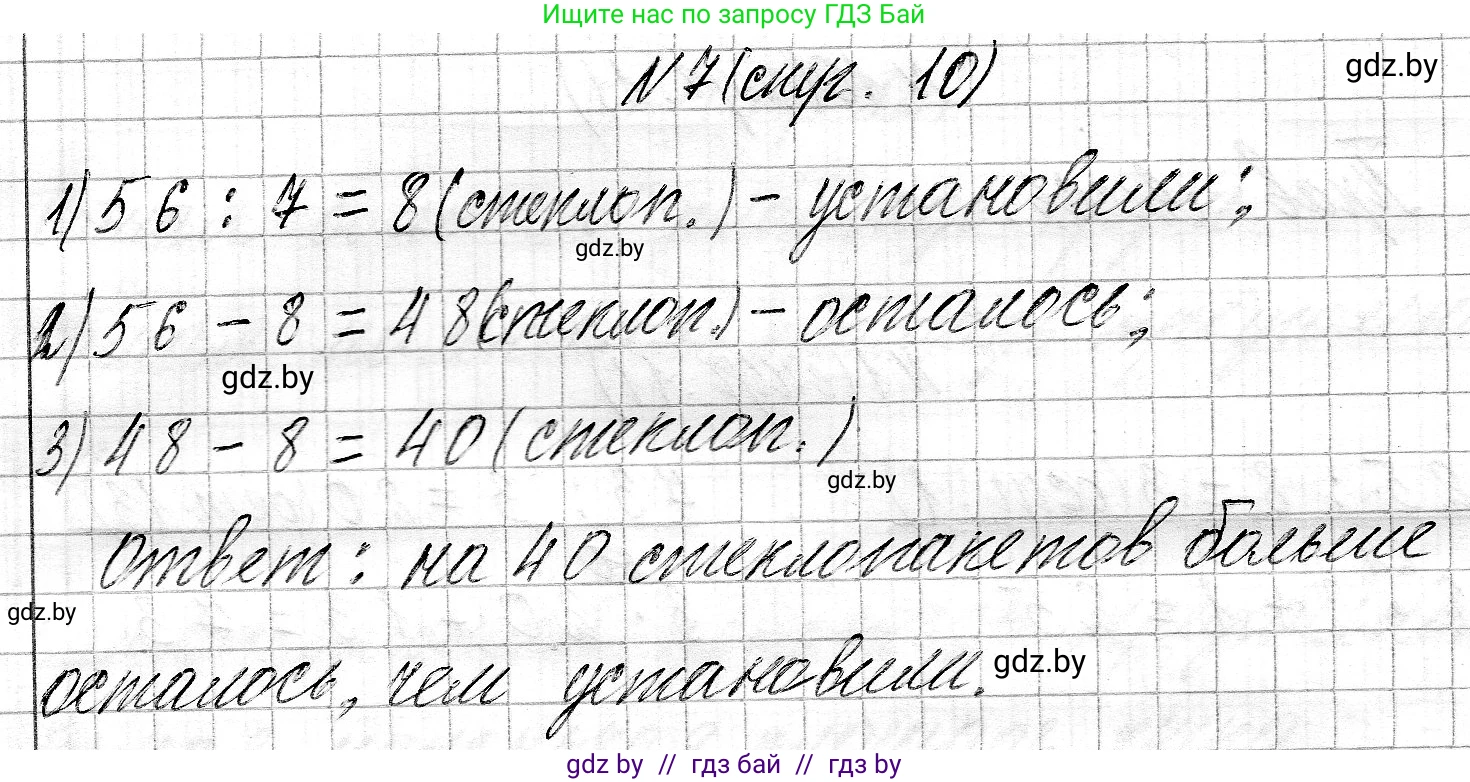 Ищите нас по запросу ГДЗ Бай
N 7 (стр. 10)
gdz.by
1) 56 : 7 = 8 (стеклоп.) - установили;
gdz.by
2) 56 - 8 = 48 (стеклоп.) - осталось;
gdz.by
3) 48 - 8 = 40 (стеклоп.)
gdz.by
Ответ: на 40 стеклопакетов больше
gdz.by
осталось, чем установили.
gdz.by
gdz by // гдз бай // гдз by